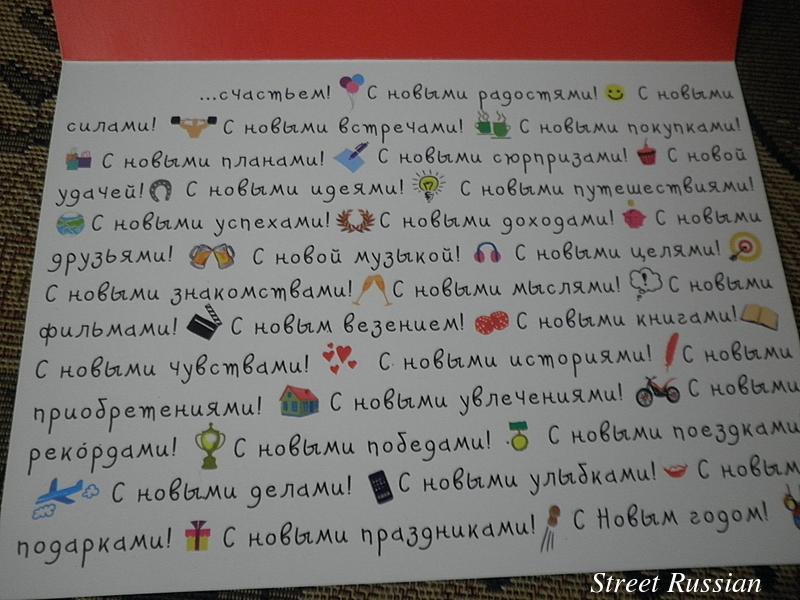 ...счастьем! С новыми радостями! С новыми
силами! С новыми встречами! С новыми покупками!
С новыми планами! С новыми сюрпризами! С новой
удачей! С новыми идеями! С новыми путешествиями!
С новыми успехами! С новыми доходами! С новыми
друзьями! С новой музыкой! С новыми целями!
С новыми знакомствами! С новыми мыслями! С новыми
фильмами! С новым везением! С новыми книгами!
С новыми чувствами! С новыми историями! С новыми
приобретениями! С новыми увлечениями! С новыми
реко́рдами! С новыми победами! С новыми поездками
С новыми делами! С новыми улыбками! С новым
подарками! С новыми праздниками! С Новым годом!
Street Russian